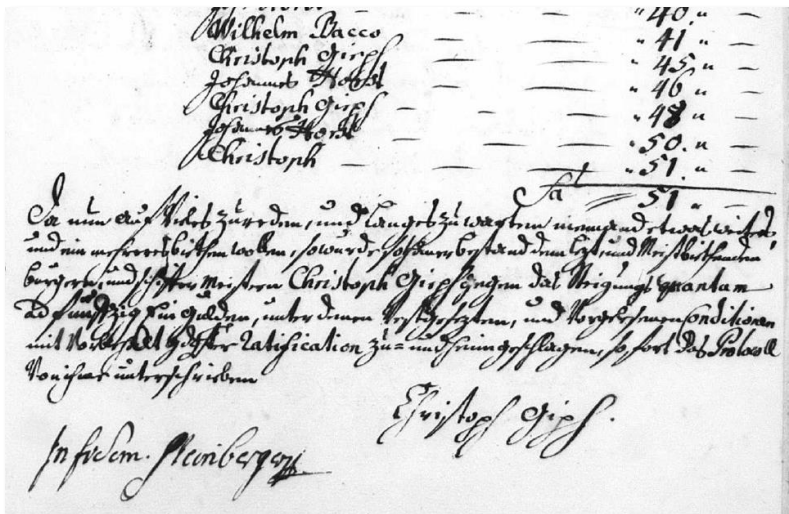 " 40. " —
Wilhelm Bacco — — — " 41 " —
Christoph Giph — — — " 45 " —
Johannes Horst — — — " 46 " —
Christoph Giph — — — " 48 " —
Johannes Horst — — — " 50. " —
Christoph — — — " 51. " —
Sa 51 " —
Da nun auf Vieles zureden, und langes zuwarten niemand etwas weiters,
und ein mehreres biethen wollen, so wurde solcher bestand dem letzt und Meistbiethenden
burgern, und Meistern Christoph Giph gegen das Steigungs quantum
ad fünfzig Ein gulden, unter denen Vestgesezten, und Vorgelesenen Conditionen
mit Vorbehalt Ratification zu= und heimgeschlagen, so fort das Protocoll
Von ihme unterschrieben
Christoph Giph.
In fidem. Steinberger